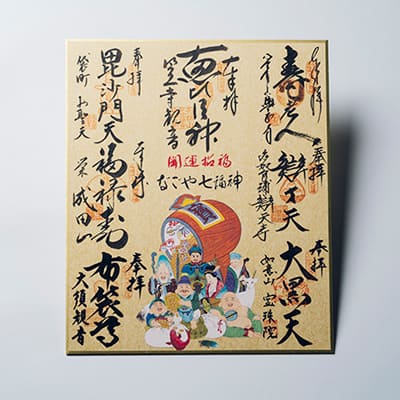 奉拝
寿老人
奉拝
辨才天
辨天寺
奉拝
大黒天
如意山 宝珠院
奉拝
恵比須神
笠寺観音
開運招福
なごや七福神
奉拝
毘沙門天
袋町 お聖天
奉拝
福禄寿
栄 成田山
奉拝
布袋尊
大須観音